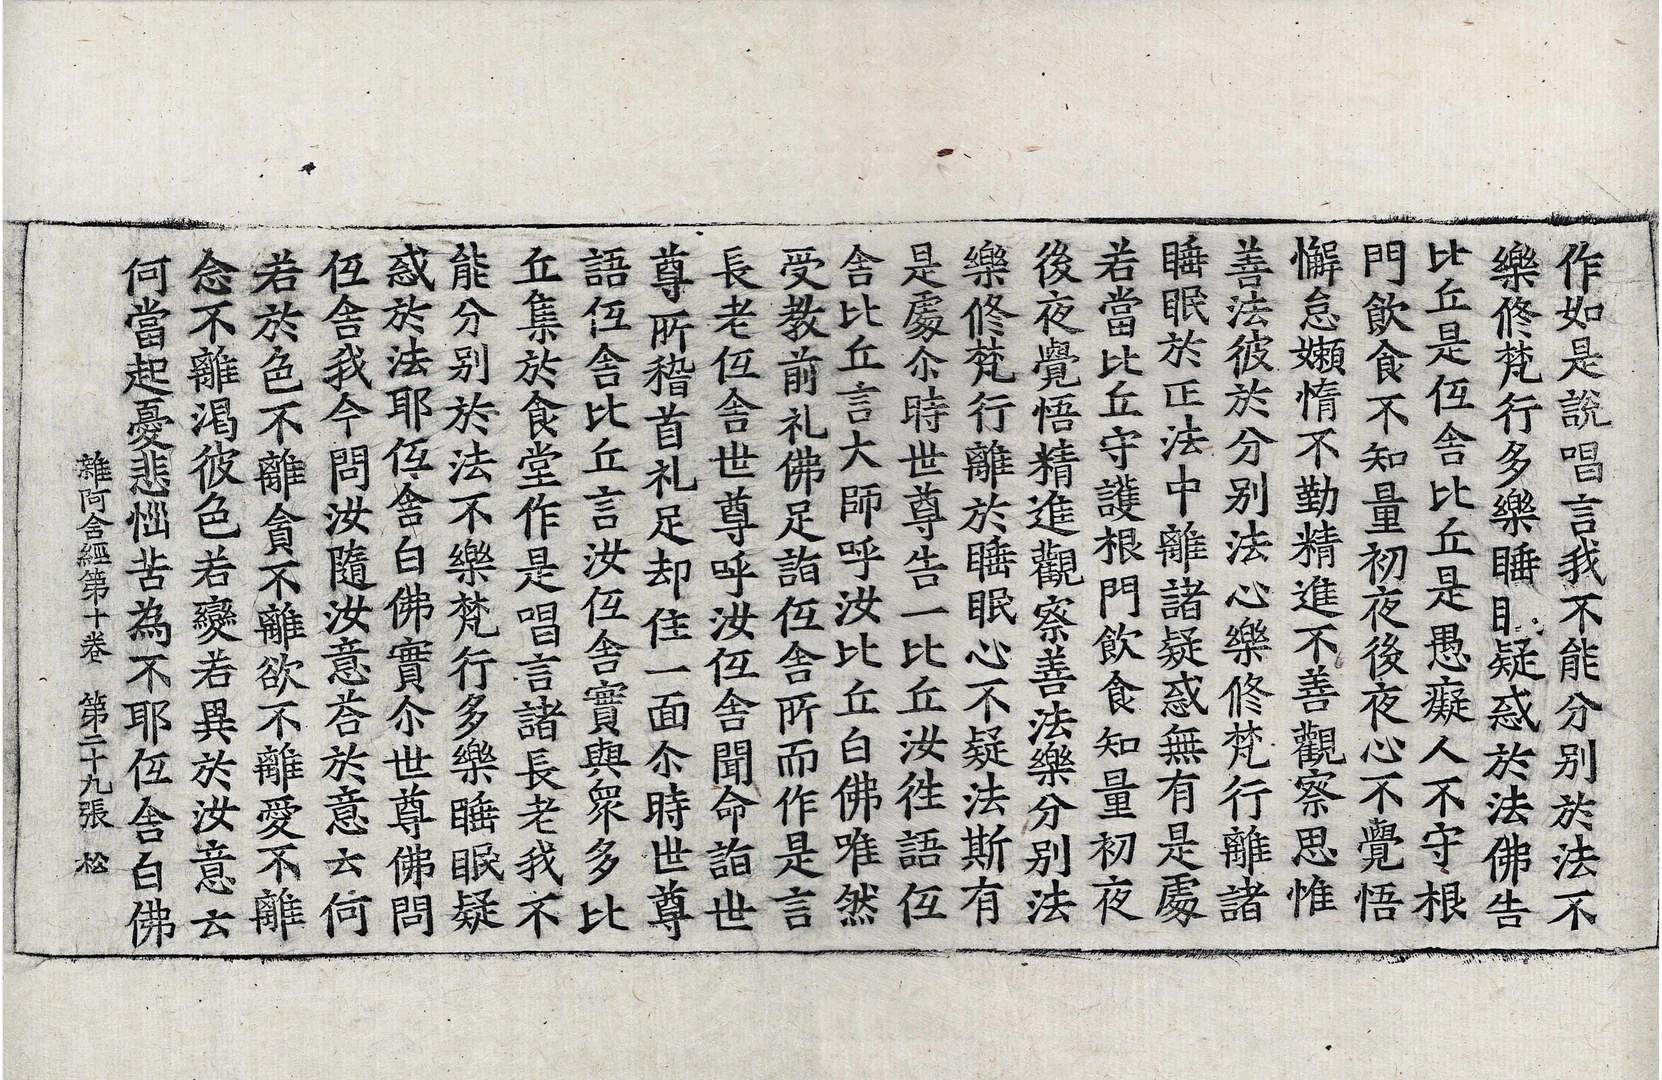 作如是說唱言我不能分別於法不
樂修梵行多樂睡眠疑惑於法佛告
比丘是仾舍比丘是愚癡人不守根
門飲食不知量初夜後夜心不覺悟
懈怠嬾惰不勤精進不善觀察思惟
善法彼於分別法心樂修梵行離諸
睡眠於正法中離諸疑惑無有是處
若當比丘守護根門飲食知量初夜
後夜覺悟精進觀察善法樂分別法
樂修梵行離於睡眠心不疑法斯有
是處尒時世尊告一比丘汝徃語仾
舍比丘言大師呼汝比丘白佛唯然
受教前礼佛足詣仾舍所而作是言
長老仾舍世尊呼汝仾舍聞命詣世
尊所稽首礼足却住一面尒時世尊
語仾舍比丘言汝仾舍實與衆多比
丘集於食堂作是唱言諸長老我不
能分別於法不樂梵行多樂睡眠疑
惑於法耶仾舍白佛實尒世尊佛問
仾舍我今問汝隨汝意荅於意云何
若於色不離貪不離欲不離愛不離
念不離渴彼色若變若異於汝意云
何當起憂悲惱苦為不耶仾舍白佛
雜阿含經第十卷　第二十九張　松